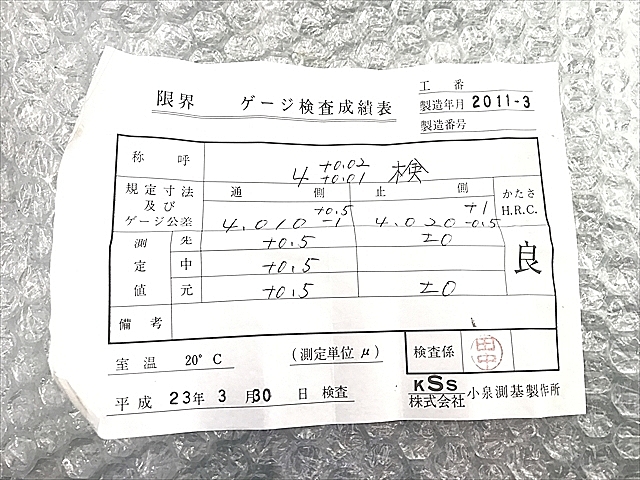 工番
限界 ゲージ検査成績表
製造年月 2011-3
製造番号
称呼 4 +0.02 +0.01 検
規定寸法及びゲージ公差 通側 止側 かたさ H.R.C.
4.010 +0.5 -1 4.020 +1 -0.5
測定値 先 +0.5 ±0 良
中 +0.5
元 +0.5 ±0
備考
室温 20°C (測定単位 μ) 検査係 田中
平成 23年 3月 30日 検査
KSS
株式会社 小泉測基製作所